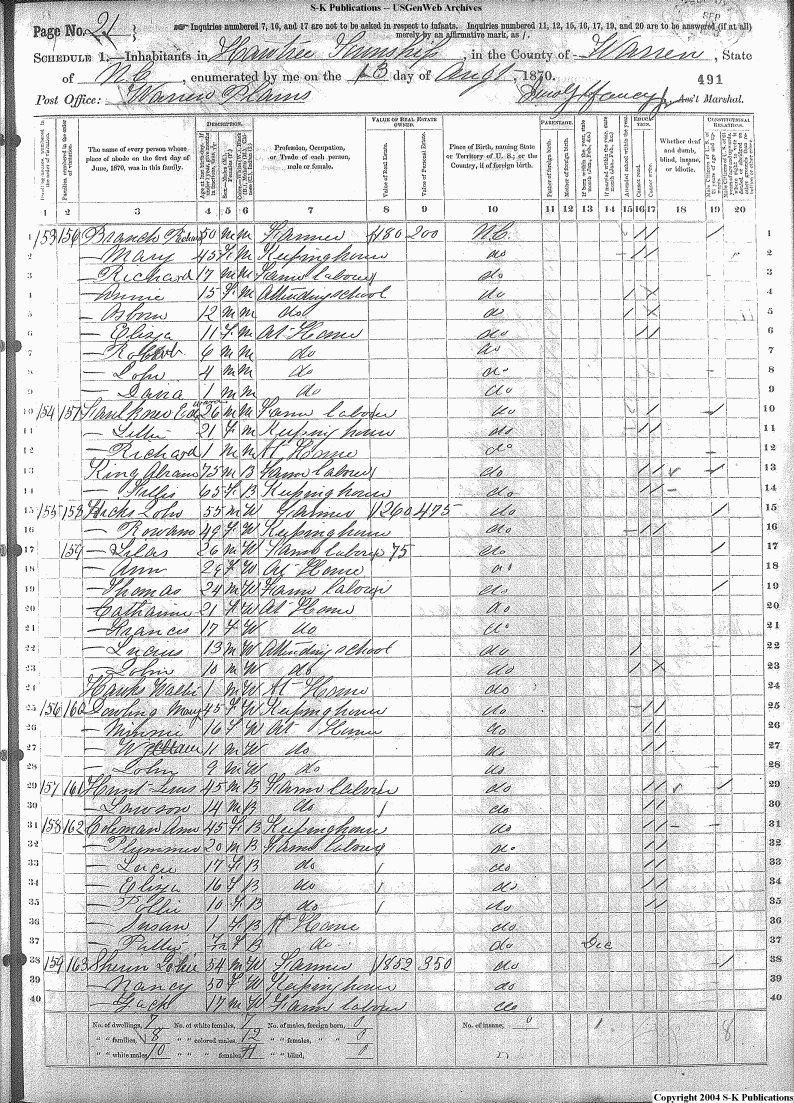 S-K Publications -- USGenWeb Archives
Page No. 21
Inquiries numbered 7, 16, and 17 are not to be asked in respect to infants. Inquiries numbered 11, 12, 15, 16, 17, 19, and 20 are to be answered (if at all) merely by an affirmative mark, as /.
SCHEDULE 1.—Inhabitants in Hawtree Township, in the County of Warren, State
of N.C., enumerated by me on the 13 day of Augt, 1870.
491
Post Office: Warren Plains
Ass't Marshal.
Dwelling-houses, numbered in the order of visitation.
Families, numbered in the order of visitation.
The name of every person whose place of abode on the first day of June, 1870, was in this family.
DESCRIPTION.
Profession, Occupation, or Trade of each person, male or female.
VALUE OF REAL ESTATE OWNED.
Value of Real Estate.
Value of Personal Estate.
Place of Birth, naming State or Territory of U. S.; or the Country, if of foreign birth.
PARENTAGE.
Father of foreign birth.
Mother of foreign birth.
If born within the year, state month (Jan., Feb., &c.)
If married within the year, state month (Jan., Feb., &c.)
EDUCATION.
Attended school within the year.
Cannot read.
Cannot write.
Whether deaf and dumb, blind, insane, or idiotic.
CONSTITUTIONAL RELATIONS.
1 2 3 4 5 6 7 8 9 10 11 12 13 14 15 16 17 18 19 20
1 153 156 Branch Richard 50 M M Farmer 180 200 N.C. / / / 1
2 — Mary 45 F M Keeping house do / / 2
3 — Richard 17 M M Farm laborer do / / 3
4 — Annie 15 F M Attending school do / X 4
5 — Osborn 12 M M do do / X 5
6 — Eliza 11 F M At Home do / / 6
7 — Robert 6 M M do do 7
8 — John 4 M M do do 8
9 — 1 M M do do 9
10 154 157 Faulkner Edward 26 M M Farm laborer do / / 10
11 — 21 F M Keeping house do / / 11
12 — Richard 1 M M At Home do 12
13 King Abram 75 M B Farm laborer do / / / 13
14 — 65 F B Keeping house do / / 14
15 155 158 Hicks John 55 M W Farmer 1260 475 do / 15
16 — Rowann 49 F W Keeping house do / / 16
17 159 — Silas 26 M W Farm laborer 75 do / 17
18 — Ann 29 F W At Home do 18
19 — Thomas 24 M W Farm laborer do / 19
20 — Catharine 21 F W At Home do 20
21 — Frances 17 F W do do 21
22 — Lucius 13 M W Attending school do / 22
23 — John 10 M W do do / X 23
24 Hawks 1 M W At Home do 24
25 156 160 Dowling Mary 45 F W Keeping house do / / 25
26 — Minnie 16 F W At Home do / / 26
27 — William 11 M W do do / / 27
28 — John 9 M W do do 28
29 157 161 Hunt Lewis 45 M B Farm laborer do / / / 29
30 — Lawson 14 M B do do / / 30
31 158 162 Coleman Ann 45 F B Keeping house do / / 31
32 — Plummer 20 M B Farm laborer do / / 32
33 — Lucy 17 F B do do / / 33
34 — Eliza 16 F B do do / / 34
35 — Pollie 10 F B do do / / 35
36 — Susan 1 F B At Home do 36
37 — F B do do Dec 37
38 159 163 54 M W Farmer 1852 350 do / 38
39 — Nancy 50 F W Keeping house do 39
40 — Zack 17 M W Farm laborer do 40
No. of dwellings, 7 No. of white females, 7 No. of males, foreign born, 0 No. of insane, 0 1 8
" " families, 8 " " colored males, 12 " " females, " " 0
" " white males, 10 " " females, 11 " " blind, 0
Copyright 2004 S-K Publications